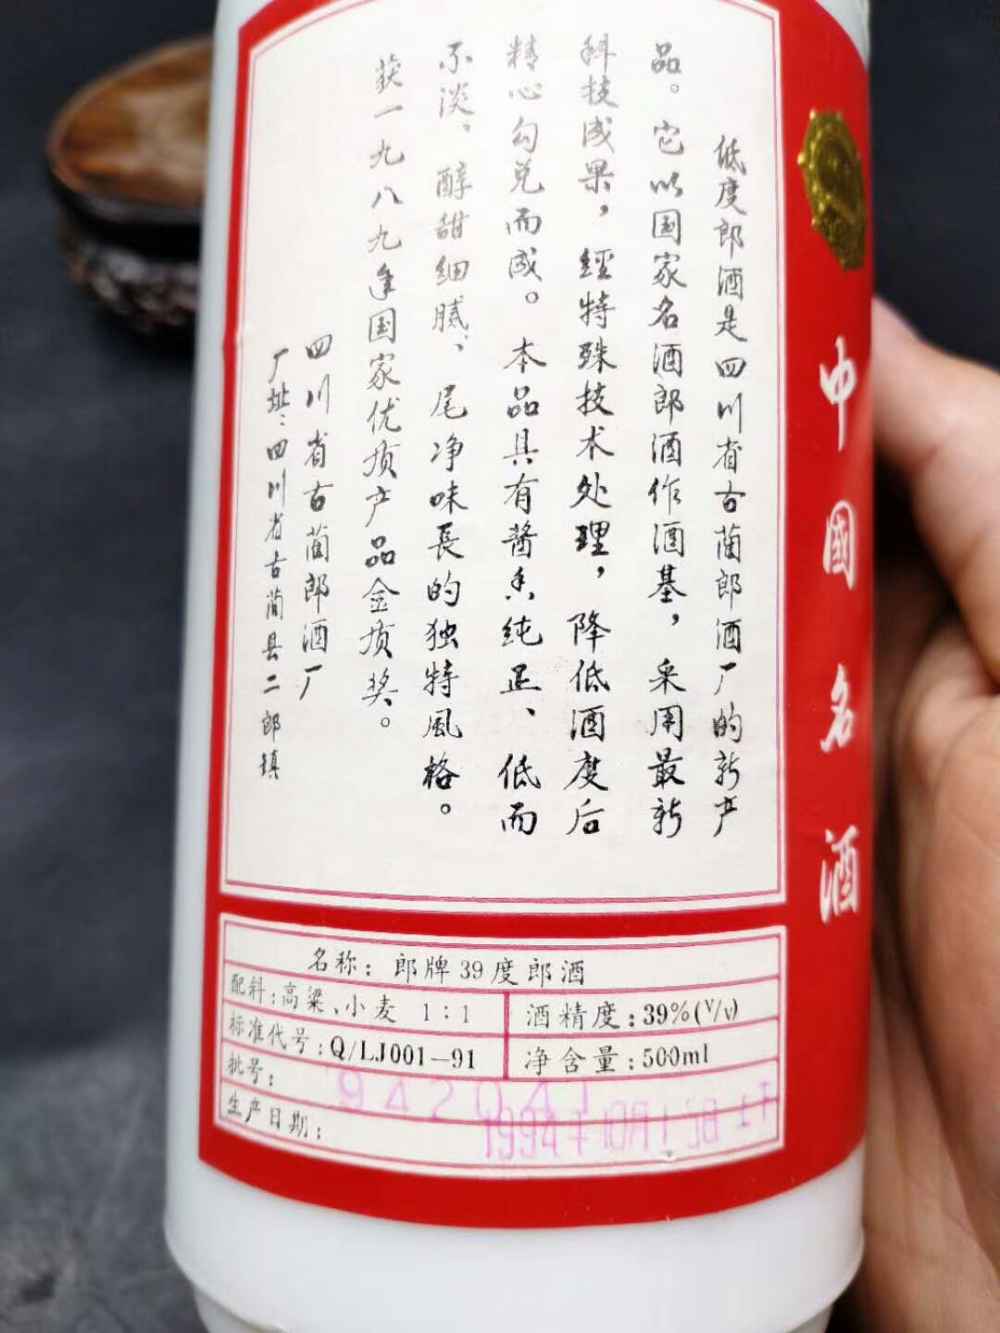 低度郎酒是四川省古蔺郎酒厂的新产
品。它以国家名酒郎酒作酒基，采用最新
科技成果，經特殊技术处理，降低酒度后
精心勾兑而成。本品具有酱香纯正、低而
不淡、醇甜细腻、尾净味長的独特風格。
获一九八九年国家优质产品金质奖。
四川省古蔺郎酒厂
厂址：四川省古蔺县二郎镇
中國名酒
名称：郎牌39度郎酒
配料：高粱、小麦 1:1
酒精度：39%(V/V)
标准代号：Q/LJ001—91
净含量：500ml
批号：
生产日期：
1994年10月